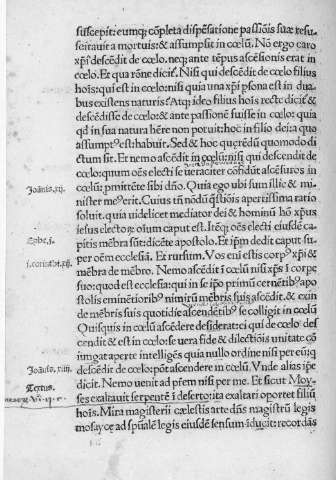 suscepit: eumq; cōpleta dispēsatione passiōis suæ resu-
scitauit a mortuis: & assumpsit in cœlū. Nō ergo caro
xp̄i descēdit de cœlo. neq; ante tēpus ascēsionis erat in
cœlo. Et qua rōne dicit. Nisi qui descēdit de cœlo filius
hois: qui est in cœlo: nisi quia una xp̄i psona est in dua
bus existens naturis? Atq; ideo filius hois recte dicit & de-
scēdisse de cœlo: & ante passionē fuisse in cœlo: quia
qd in sua natura hēre non potuit: hoc in filio dei a quo
assumptꝰ est: habuit. Sed & hoc quærēdū quomodo di
ctum sit. Et nemo ascēdit in cœlū: nisi qui descendit de
cœlo: quum oēs electi se ueraciter cōfidūt ascēsuros in
Joānis. xij.
cœlū: pmittēte sibi dn̄o. Quia ego ubi sum illic & mi-
nister meꝰ erit. Cuius tn̄ nodū q̄stiōis apertissima ratio
soluit. quia uidelicet mediator dei & hominū hō xp̄us
Ephe. j.
iesus electoꝝ oīum caput est. Itēq; oēs electi eiusdē ca-
pitis mēbra sūt: dicēte apostolo. Et ip̄m dedit caput su-
j. corinthi. xij.
per oēm ecclesiā. Et rursum. Vos eni estis corpꝰ xp̄i &
mēbra de mēbro. Nemo ascēdit ī cœlū nisi xp̄s ī corpe
suo: quod est ecclesia: qui in se ip̄o primū cernētibꝰ apo
stolis eminētioribꝰ nimirū mēbris suis ascēdit. & exin
de mēbris suis quotidie ascendētibꝰ se colligit in cœlū
Quisquis in cœlū ascēdere desiderat: ei qui de cœlo des
cendit & est in cœlo: se uera fide & dilectiōis unitate cō
iungat aperte intelligēs quia nullo ordine nisi per eū: q
Joānis. xiiij.
descēdit de cœlo: pōt ascendere in cœlū. Vnde alias ip̄e
Textus.
dicit. Nemo uenit ad prēm nisi per me. Et sicut Moy-
ses exaltauit serpentē ī deserto: ita exaltari oportet filiū
hois. Mira magisterii cælestis arte dn̄s magistrū legis
mosaycæ ad sp̄ualē legis eiusdē sensum īducit: recordās